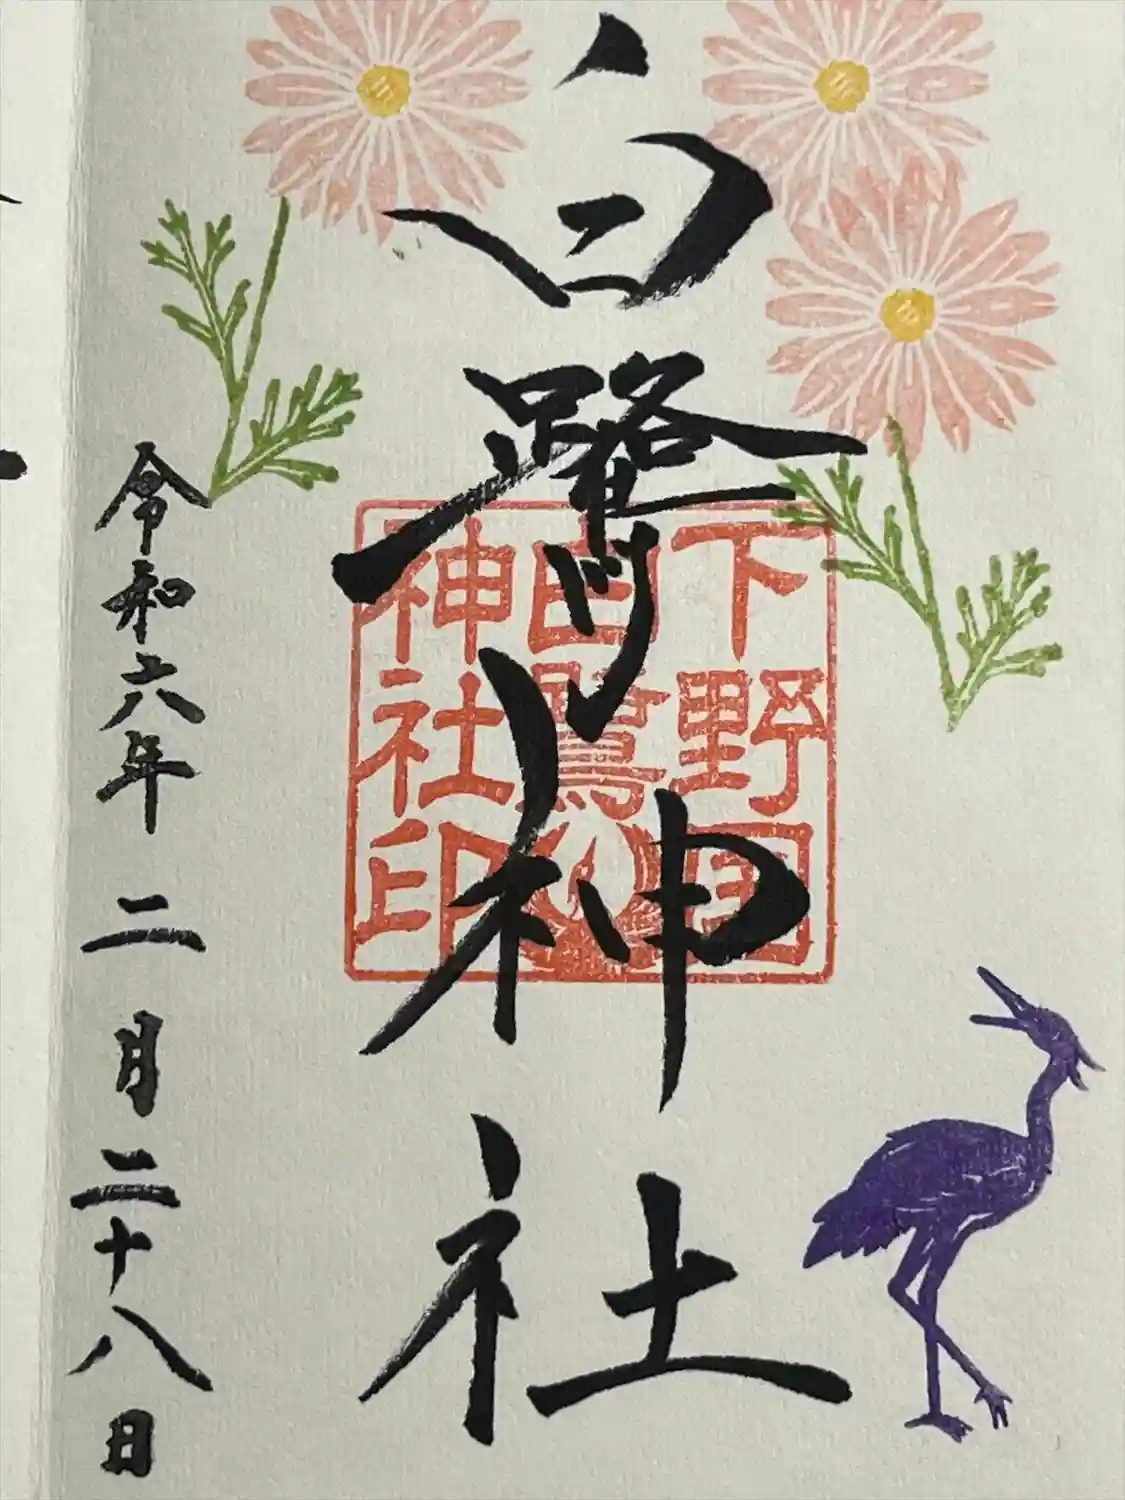 白鷺神社
下野国
白鷺
神社印
令和六年 二月二十八日